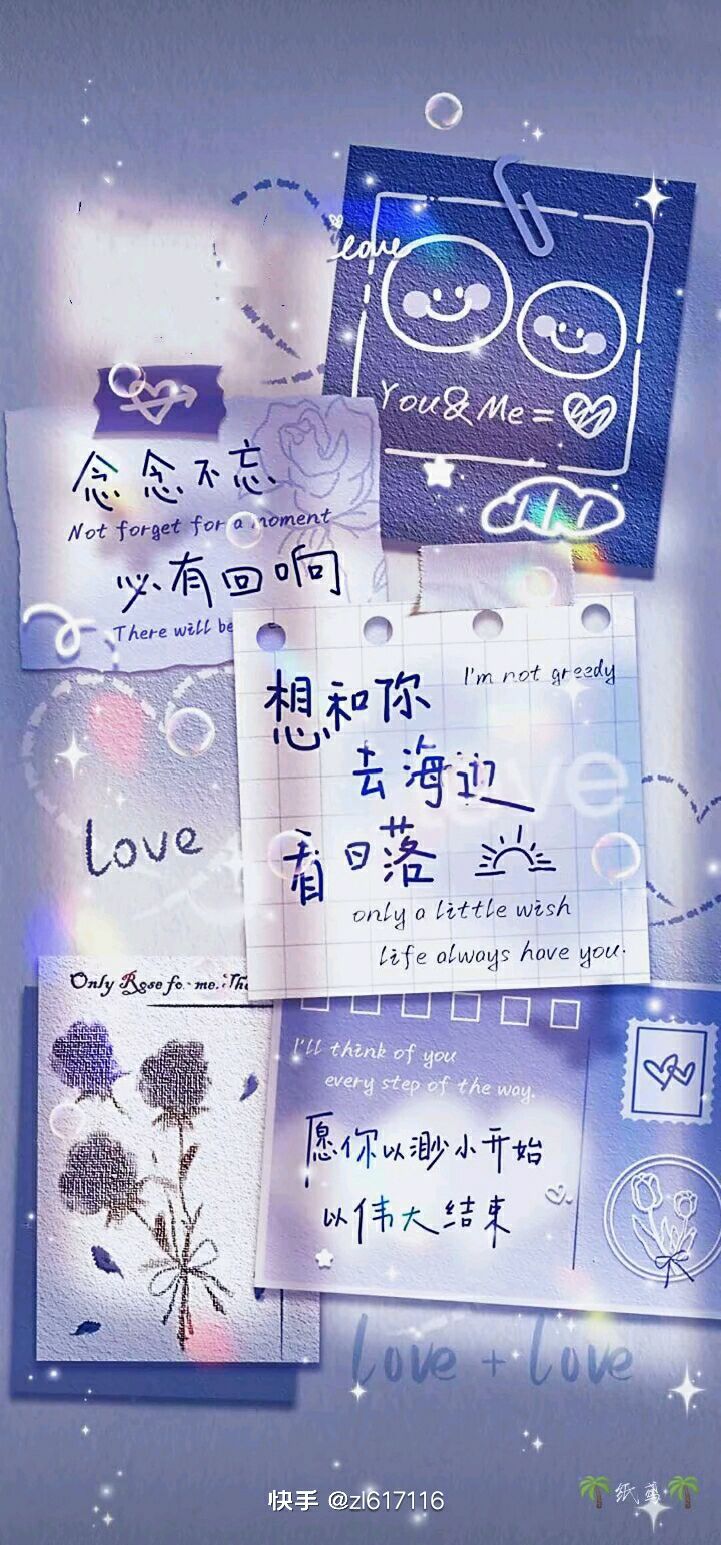 love
You & Me =
念念不忘
Not forget for a moment
必有回响
There will be
想和你
I'm not greedy
去海边
love
看日落
only a little wish
life always have you.
love
Only Rose for me. Th
I'll think of you
every step of the way.
愿你以渺小开始
以伟大结束
love + love
快手 @zl617116
纸鸢